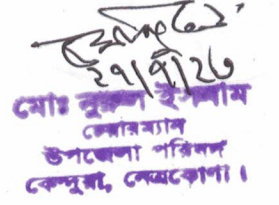 ২৭/৭/২৩
মোঃ নুরুল ইসলাম
চেয়ারম্যান
উপজেলা পরিষদ
কেন্দুয়া, নেত্রকোণা।